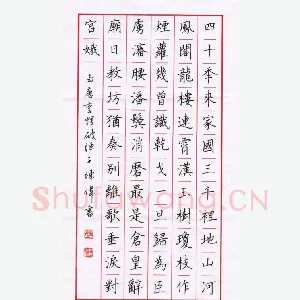 四十季來家國三千裡地山河
鳳閣龍樓連霄漢玉樹瓊枝作
煙蘿幾曾識乾戈一旦歸為臣
虜瀋腰潘鬢消磨最是倉皇辭
廟日教坊猶奏別離歌垂淚對
宮娥
Shufawang.CN